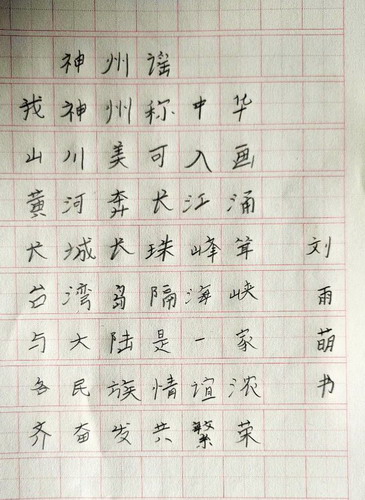 神州谣
我神州称中华
山川美可入画
黄河奔长江涌
长城长珠峰耸
台湾岛隔海峡
与大陆是一家
各民族情谊浓
齐奋发共繁荣
刘雨萌书